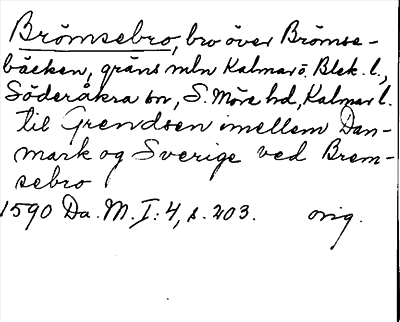 Brömsebro, bro över Brömse-
bäcken, gräns mln Kalmar o. Blek. l.,
Söderåkra sn, S. Möre hd, Kalmar l.
til Grendsen imellem Dan-
mark og Sverige ved Brem-
sebro
1590 Da. M. I: 4, s. 203. orig.